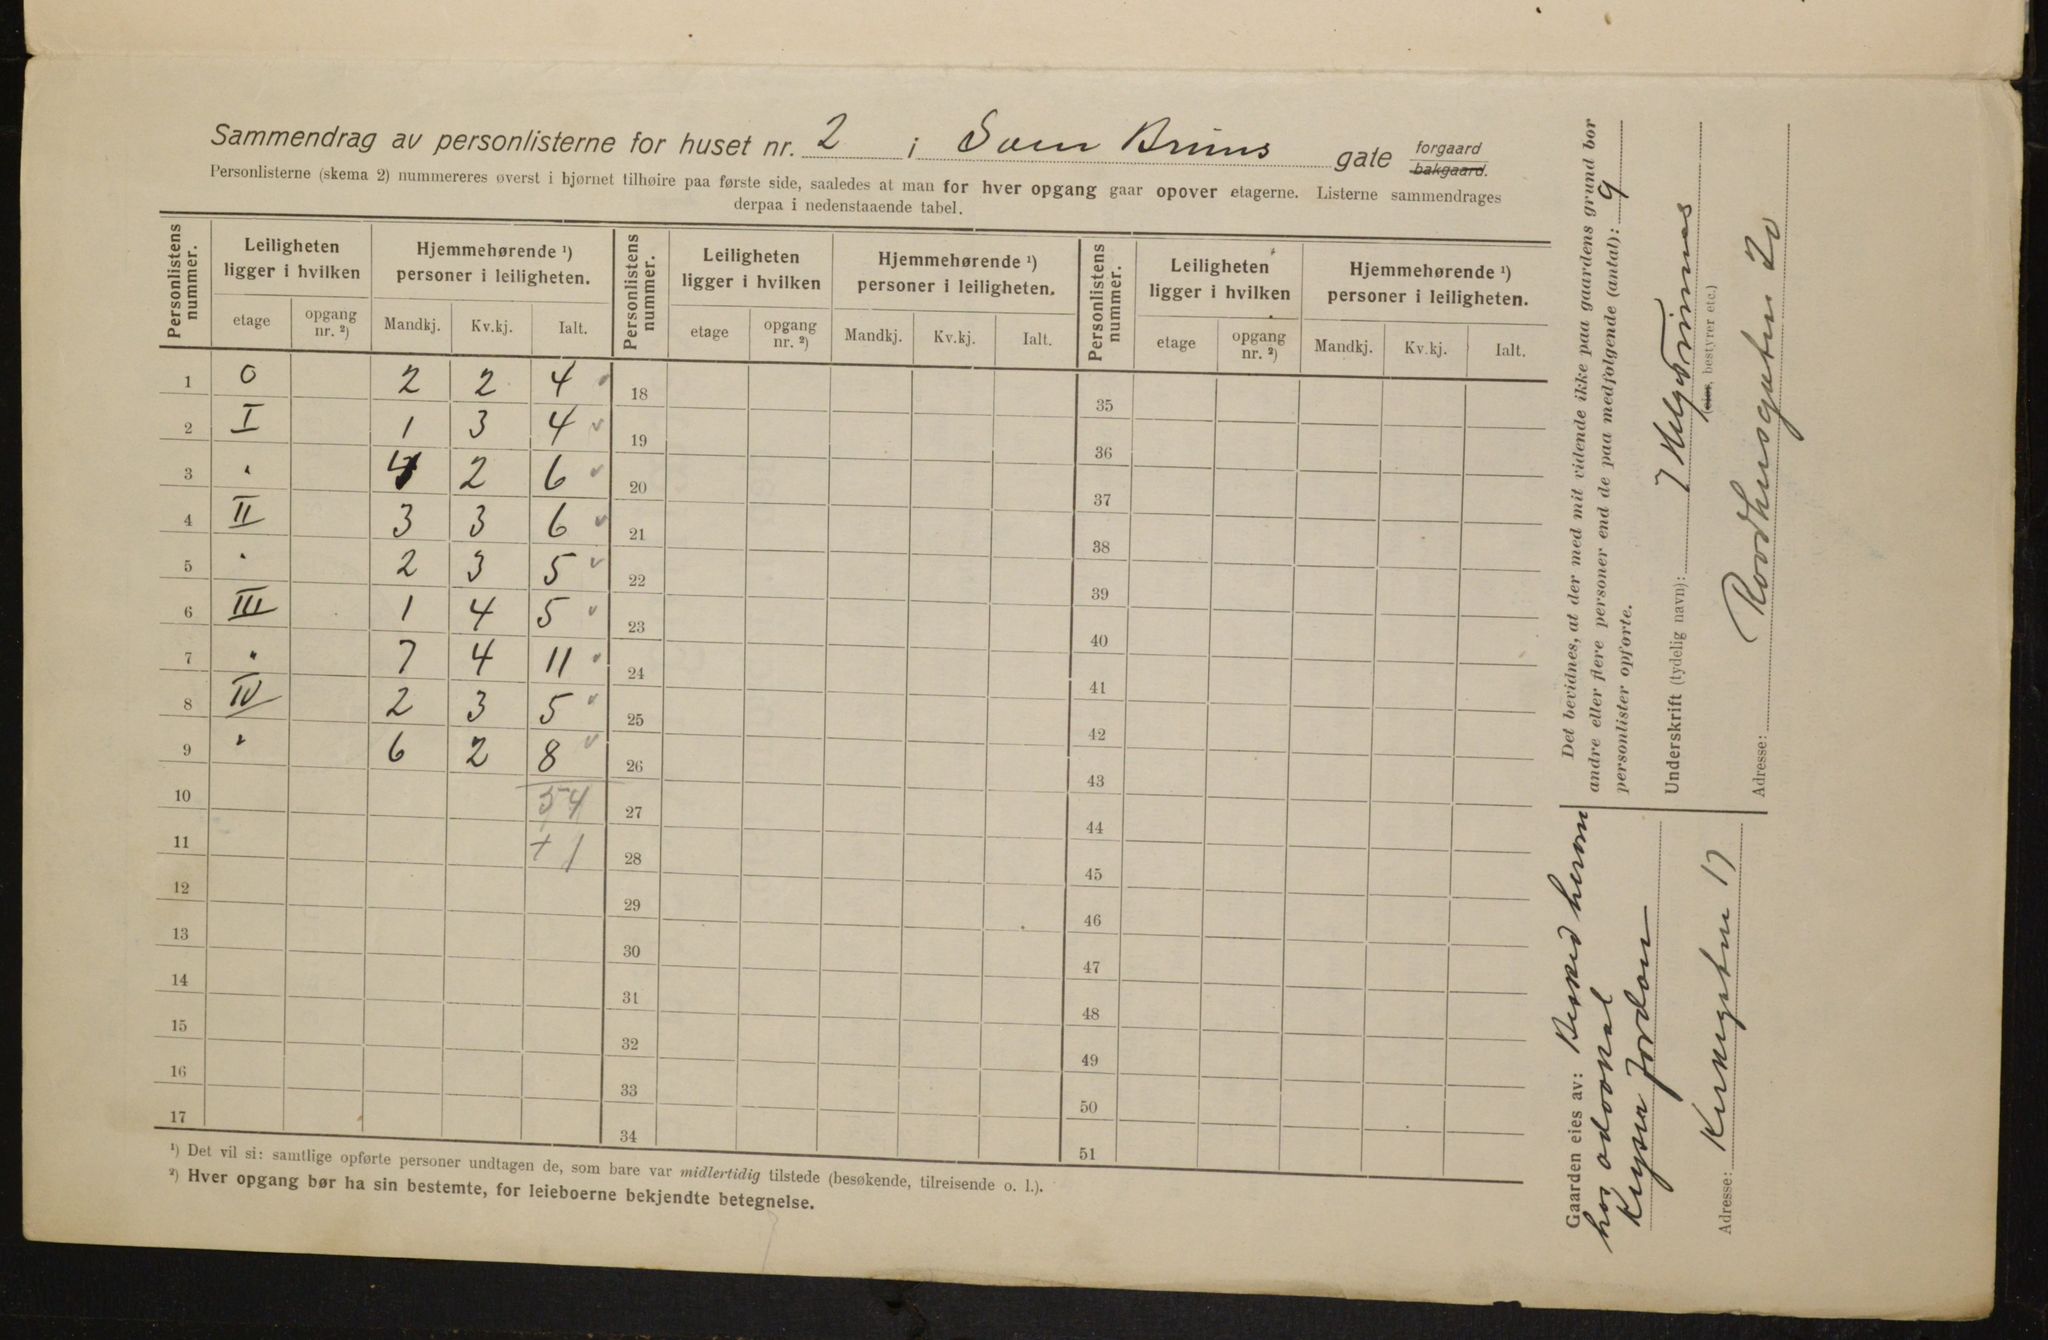 Sammendrag av personlisterne for huset nr. 2 i Sven Bruns gate forgaard bakgaard.
Personlisterne (skema 2) nummereres øverst i hjørnet tilhøire paa første side, saaledes at man for hver opgang gaar opover etagerne. Listerne sammendrages
derpaa i nedenstaaende tabel.
Personlistens nummer. Leiligheten ligger i hvilken Hjemmehørende ¹) personer i leiligheten. Personlistens nummer. Leiligheten ligger i hvilken Hjemmehørende ¹) personer i leiligheten. Personlistens nummer. Leiligheten ligger i hvilken Hjemmehørende ¹) personer i leiligheten.
etage opgang nr. ²) Mandkj. Kv.kj. Ialt. etage opgang nr. ²) Mandkj. Kv.kj. Ialt. etage opgang nr. ²) Mandkj. Kv.kj. Ialt.
1 0 2 2 4 18 35
2 I 1 3 4 19 36
3 " 4 2 6 20 37
4 II 3 3 6 21 38
5 " 2 3 5 22 39
6 III 1 4 5 23 40
7 " 7 4 11 24 41
8 IV 2 3 5 25 42
9 " 6 2 8 26 43
10 54 27 44
11 + 1 28 45
12 29 46
13 30 47
14 31 48
15 32 49
16 33 50
17 34 51
¹) Det vil si: samtlige opførte personer undtagen de, som bare var midlertidig tilstede (besøkende, tilreisende o. l.).
²) Hver opgang bør ha sin bestemte, for leieboerne bekjendte betegnelse.
Det bevidnes, at der med mit vidende ikke paa gaardens grund bor
andre eller flere personer end de paa medfølgende (antal): 9
personlister opførte.
Underskrift (tydelig navn):
(eier, bestyrer etc.)
Adresse: Raadhusgaten 20
Gaarden eies av: Besked herom
hos advokat
Keyser Jordan
Adresse: Kirkegaten 17